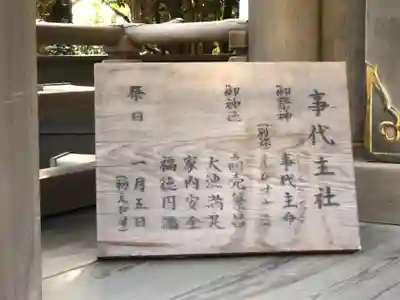 事代主社
御祭神 事代主命
御神徳 商売繁昌
大漁満足
家内安全
福徳円満
祭日 一月五日